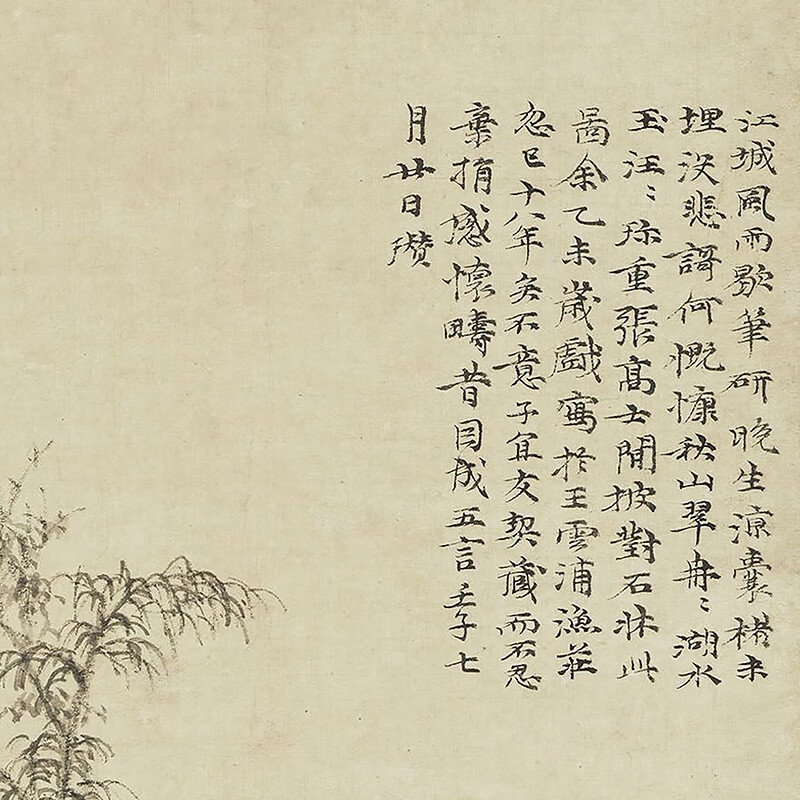 江城風雨歇筆研晚生涼囊楮未
埋沒悲謌何慨慷秋山翠冉〻湖水
玉汪〻珎重張髙士閒披對石牀此
啚余乙未歲戲寫於王雲浦漁莊
忽已十八年矣不意子宜友契藏而不忍
棄捐感懷疇昔因成五言壬子七
月廿日瓚